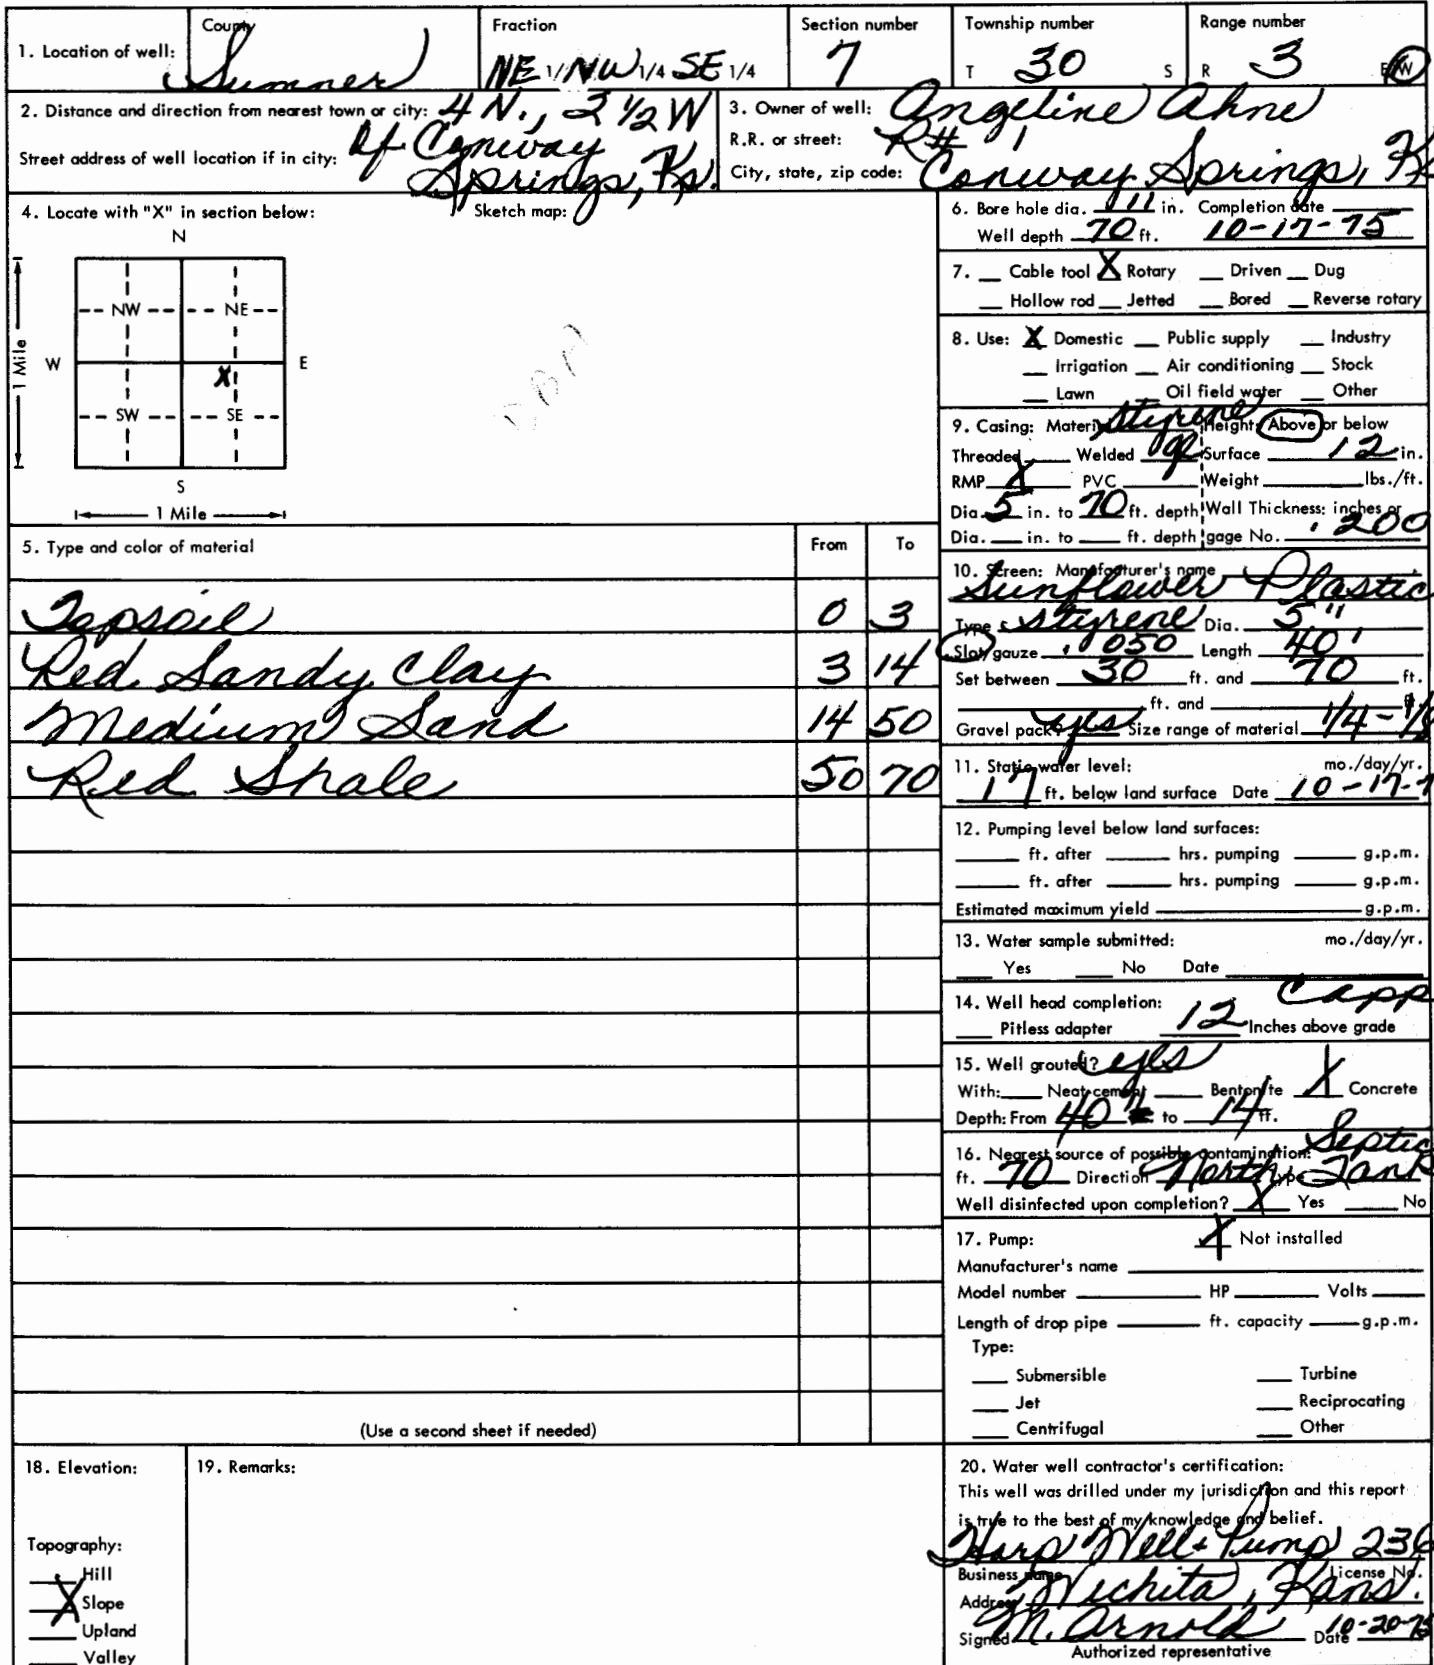 1. Location of well: County Sumner Fraction NE 1/4 NW 1/4 SE 1/4 Section number 7 Township number T 30 S Range number R 3 E/W
2. Distance and direction from nearest town or city: 4 N., 3 1/2 W
Of Conway
Street address of well location if in city: Springs, Ks.
3. Owner of well: Angeline Ahne
R.R. or street: R# 1
City, state, zip code: Conway Springs, Ks
4. Locate with "X" in section below: Sketch map:
N
NW NE
W E
X
SW SE
S
1 Mile
1 Mile
5. Type and color of material From To
Topsoil 0 3
Red Sandy Clay 3 14
Medium Sand 14 50
Red Shale 50 70
(Use a second sheet if needed)
6. Bore hole dia. 11 in. Completion date
Well depth 70 ft. 10-17-75
7. Cable tool X Rotary Driven Dug
Hollow rod Jetted Bored Reverse rotary
8. Use: X Domestic Public supply Industry
Irrigation Air conditioning Stock
Lawn Oil field water Other
9. Casing: Material styrene Height: Above or below
Threaded Welded gl Surface 12 in.
RMP X PVC Weight lbs./ft.
Dia. 5 in. to 70 ft. depth Wall Thickness: inches or
Dia. in. to ft. depth gage No. .200
10. Screen: Manufacturer's name
Sunflower Plastic
Type styrene Dia. 5"
Slot/gauze .050 Length 40'
Set between 30 ft. and 70 ft.
ft. and ft.
Gravel pack? yes Size range of material 1/4 - 1/8
11. Static water level: mo./day/yr.
17 ft. below land surface Date 10-17-7
12. Pumping level below land surfaces:
ft. after hrs. pumping g.p.m.
ft. after hrs. pumping g.p.m.
Estimated maximum yield g.p.m.
13. Water sample submitted: mo./day/yr.
Yes No Date
14. Well head completion: Capp
Pitless adapter 12 Inches above grade
15. Well grouted? yes
With: Neat cement Bentonite X Concrete
Depth: From 40" to 14 ft.
16. Nearest source of possible contamination: Septic
ft. 70 Direction North Type Tank
Well disinfected upon completion? X Yes No
17. Pump: X Not installed
Manufacturer's name
Model number HP Volts
Length of drop pipe ft. capacity g.p.m.
Type:
Submersible Turbine
Jet Reciprocating
Centrifugal Other
18. Elevation:
Topography:
Hill
X Slope
Upland
Valley
19. Remarks:
20. Water well contractor's certification:
This well was drilled under my jurisdiction and this report
is true to the best of my knowledge and belief.
Harp Well + Pump 236
Business name License No.
Address Wichita, Kans.
Signed M. Arnold Date 10-20-75
Authorized representative